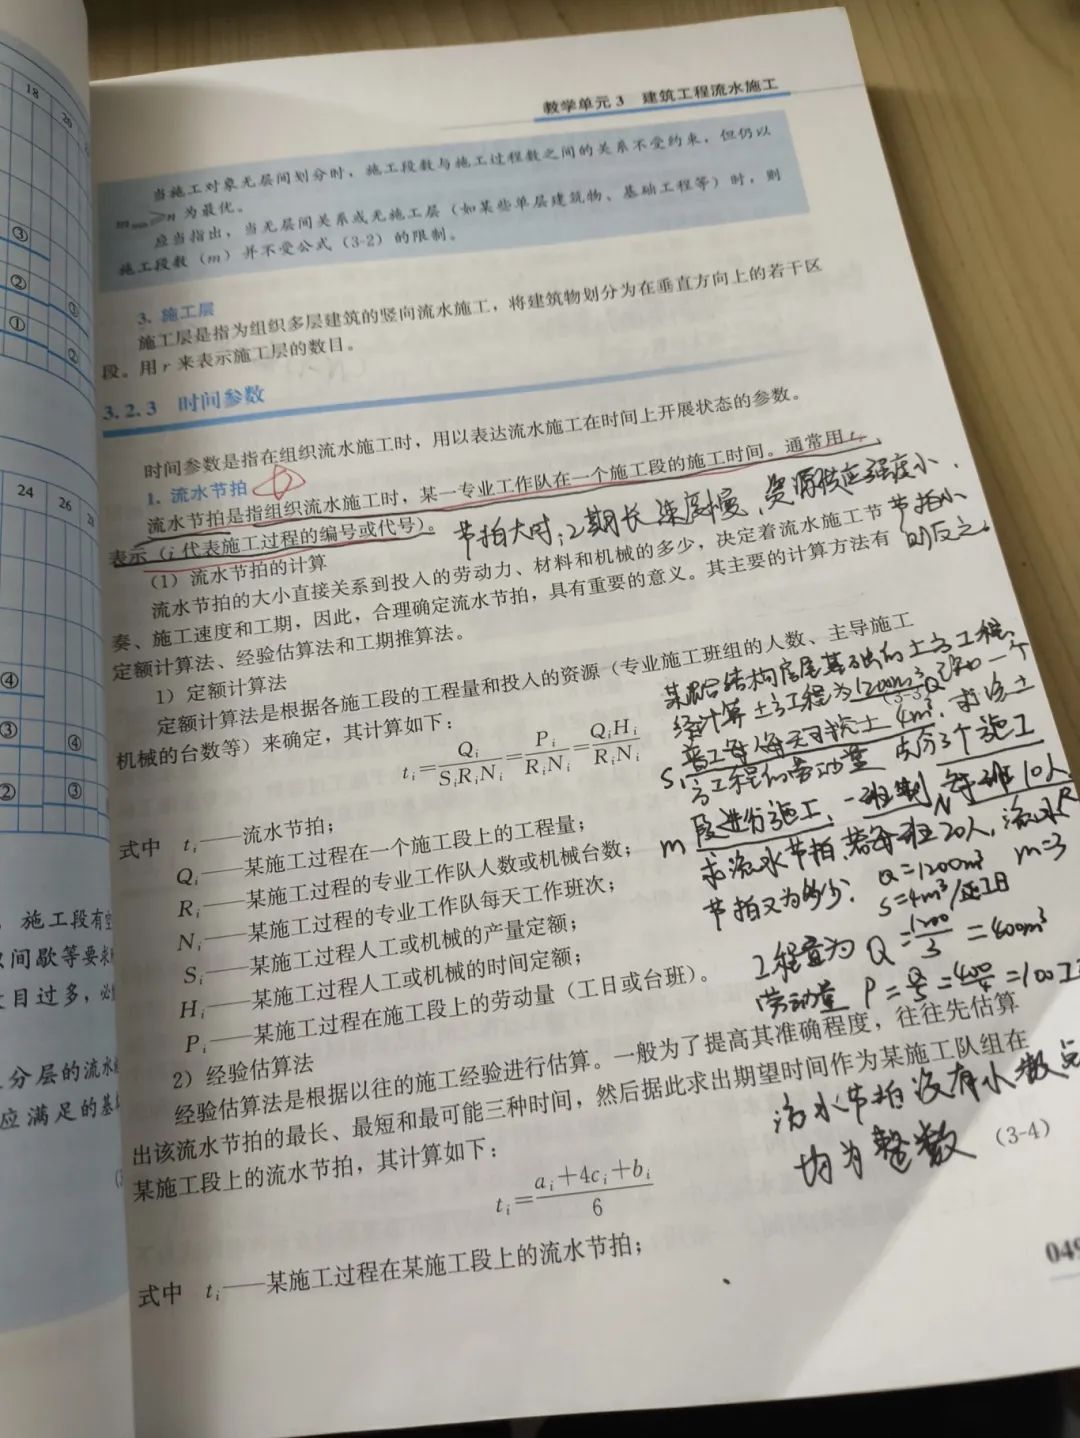 18
20
③
②
①
③
②
24
26
④
③
②
④
③
施工段有空
分层的流水
应满足的基
教学单元3 建筑工程流水施工
当施工对象无层间划分时，施工段数与施工过程数之间的关系不受约束，但仍以
m ⩾n 为最优。
应当指出，当无层间关系或无施工层（如某些单层建筑物、基础工程等）时，则
施工段数（m）并不受公式（3-2）的限制。
3. 施工层
施工层是指为组织多层建筑的竖向流水施工，将建筑物划分为在垂直方向上的若干区
段。用 r 来表示施工层的数目。
3.2.3 时间参数
时间参数是指在组织流水施工时，用以表达流水施工在时间上开展状态的参数。
1. 流水节拍
流水节拍是指组织流水施工时，某一专业工作队在一个施工段的施工时间。通常用 tᵢ
表示（i 代表施工过程的编号或代号）。
节拍大时：工期长 速度慢、资源供应强度小．
节拍小
则反之。
（1）流水节拍的计算
流水节拍的大小直接关系到投入的劳动力、材料和机械的多少，决定着流水施工节
奏、施工速度和工期，因此，合理确定流水节拍，具有重要的意义。其主要的计算方法有
定额计算法、经验估算法和工期推算法。
1）定额计算法
定额计算法是根据各施工段的工程量和投入的资源（专业施工班组的人数、主导施工
机械的台数等）来确定，其计算如下：
tᵢ=Qᵢ/SᵢRᵢNᵢ=Pᵢ/RᵢNᵢ=QᵢHᵢ/RᵢNᵢ
(3-3)
某混合结构房屋基础的土方工程，
经计算土方工程为1200m³ Q 已知一个
普工每人每天可挖土4m³，求该土
Sᵢ
方工程的劳动量 成分3个施工
m 段进行施工，一班制 N 每班10人，R
求流水节拍．若每班20人，流水
节拍又为多少．
Q=1200m³ m=3
S=4m³/工日
工程量为 Q=1200/3=400m³
劳动量 P=Q/S=400/4=100工
式中 tᵢ——流水节拍；
Qᵢ——某施工过程在一个施工段上的工程量；
Rᵢ——某施工过程的专业工作队人数或机械台数；
Nᵢ——某施工过程的专业工作队每天工作班次；
Sᵢ——某施工过程人工或机械的产量定额；
Hᵢ——某施工过程人工或机械的时间定额；
Pᵢ——某施工过程在施工段上的劳动量（工日或台班）。
2）经验估算法
经验估算法是根据以往的施工经验进行估算。一般为了提高其准确程度，往往先估算
出该流水节拍的最长、最短和最可能三种时间，然后据此求出期望时间作为某施工队组在
某施工段上的流水节拍，其计算如下：
流水节拍没有小数点
均为整数
tᵢ=aᵢ+4cᵢ+bᵢ/6
(3-4)
式中 tᵢ——某施工过程在某施工段上的流水节拍；
049